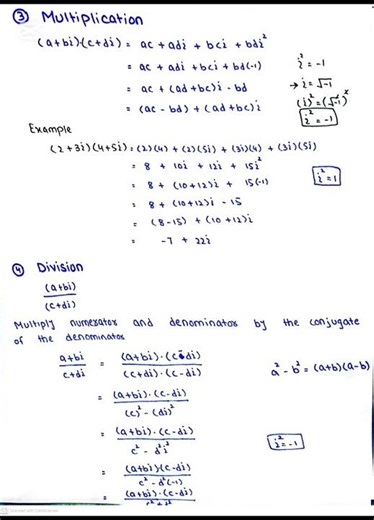 ③ Multiplication
(a+bi)(c+di) = ac + adi + bci + bdi²
= ac + adi + bci + bd(-1)
i² = -1
= ac + (ad+bc)i - bd
→ i = √-1
= (ac - bd) + (ad+bc)i
(i)² = (√-1)²
i² = -1
Example
(2+3i)(4+5i) = (2)(4) + (2)(5i) + (3i)(4) + (3i)(5i)
= 8 + 10i + 12i + 15i²
= 8 + (10+12)i + 15(-1)
i² = 1
= 8 + (10+12)i - 15
= (8-15) + (10+12)i
= -7 + 22i
④ Division
(a+bi)
(c+di)
Multiply numerator and denominator by the conjugate
of the denominator
a+bi = (a+bi)·(c-di)
c+di (c+di)·(c-di)
a² - b² = (a+b)(a-b)
= (a+bi)·(c-di)
(c)² - (di)²
= (a+bi)·(c-di)
c² - d²i²
i² = -1
= (a+bi)(c-di)
c² - d²(-1)
= (a+bi)·(c-di)
c² + d²